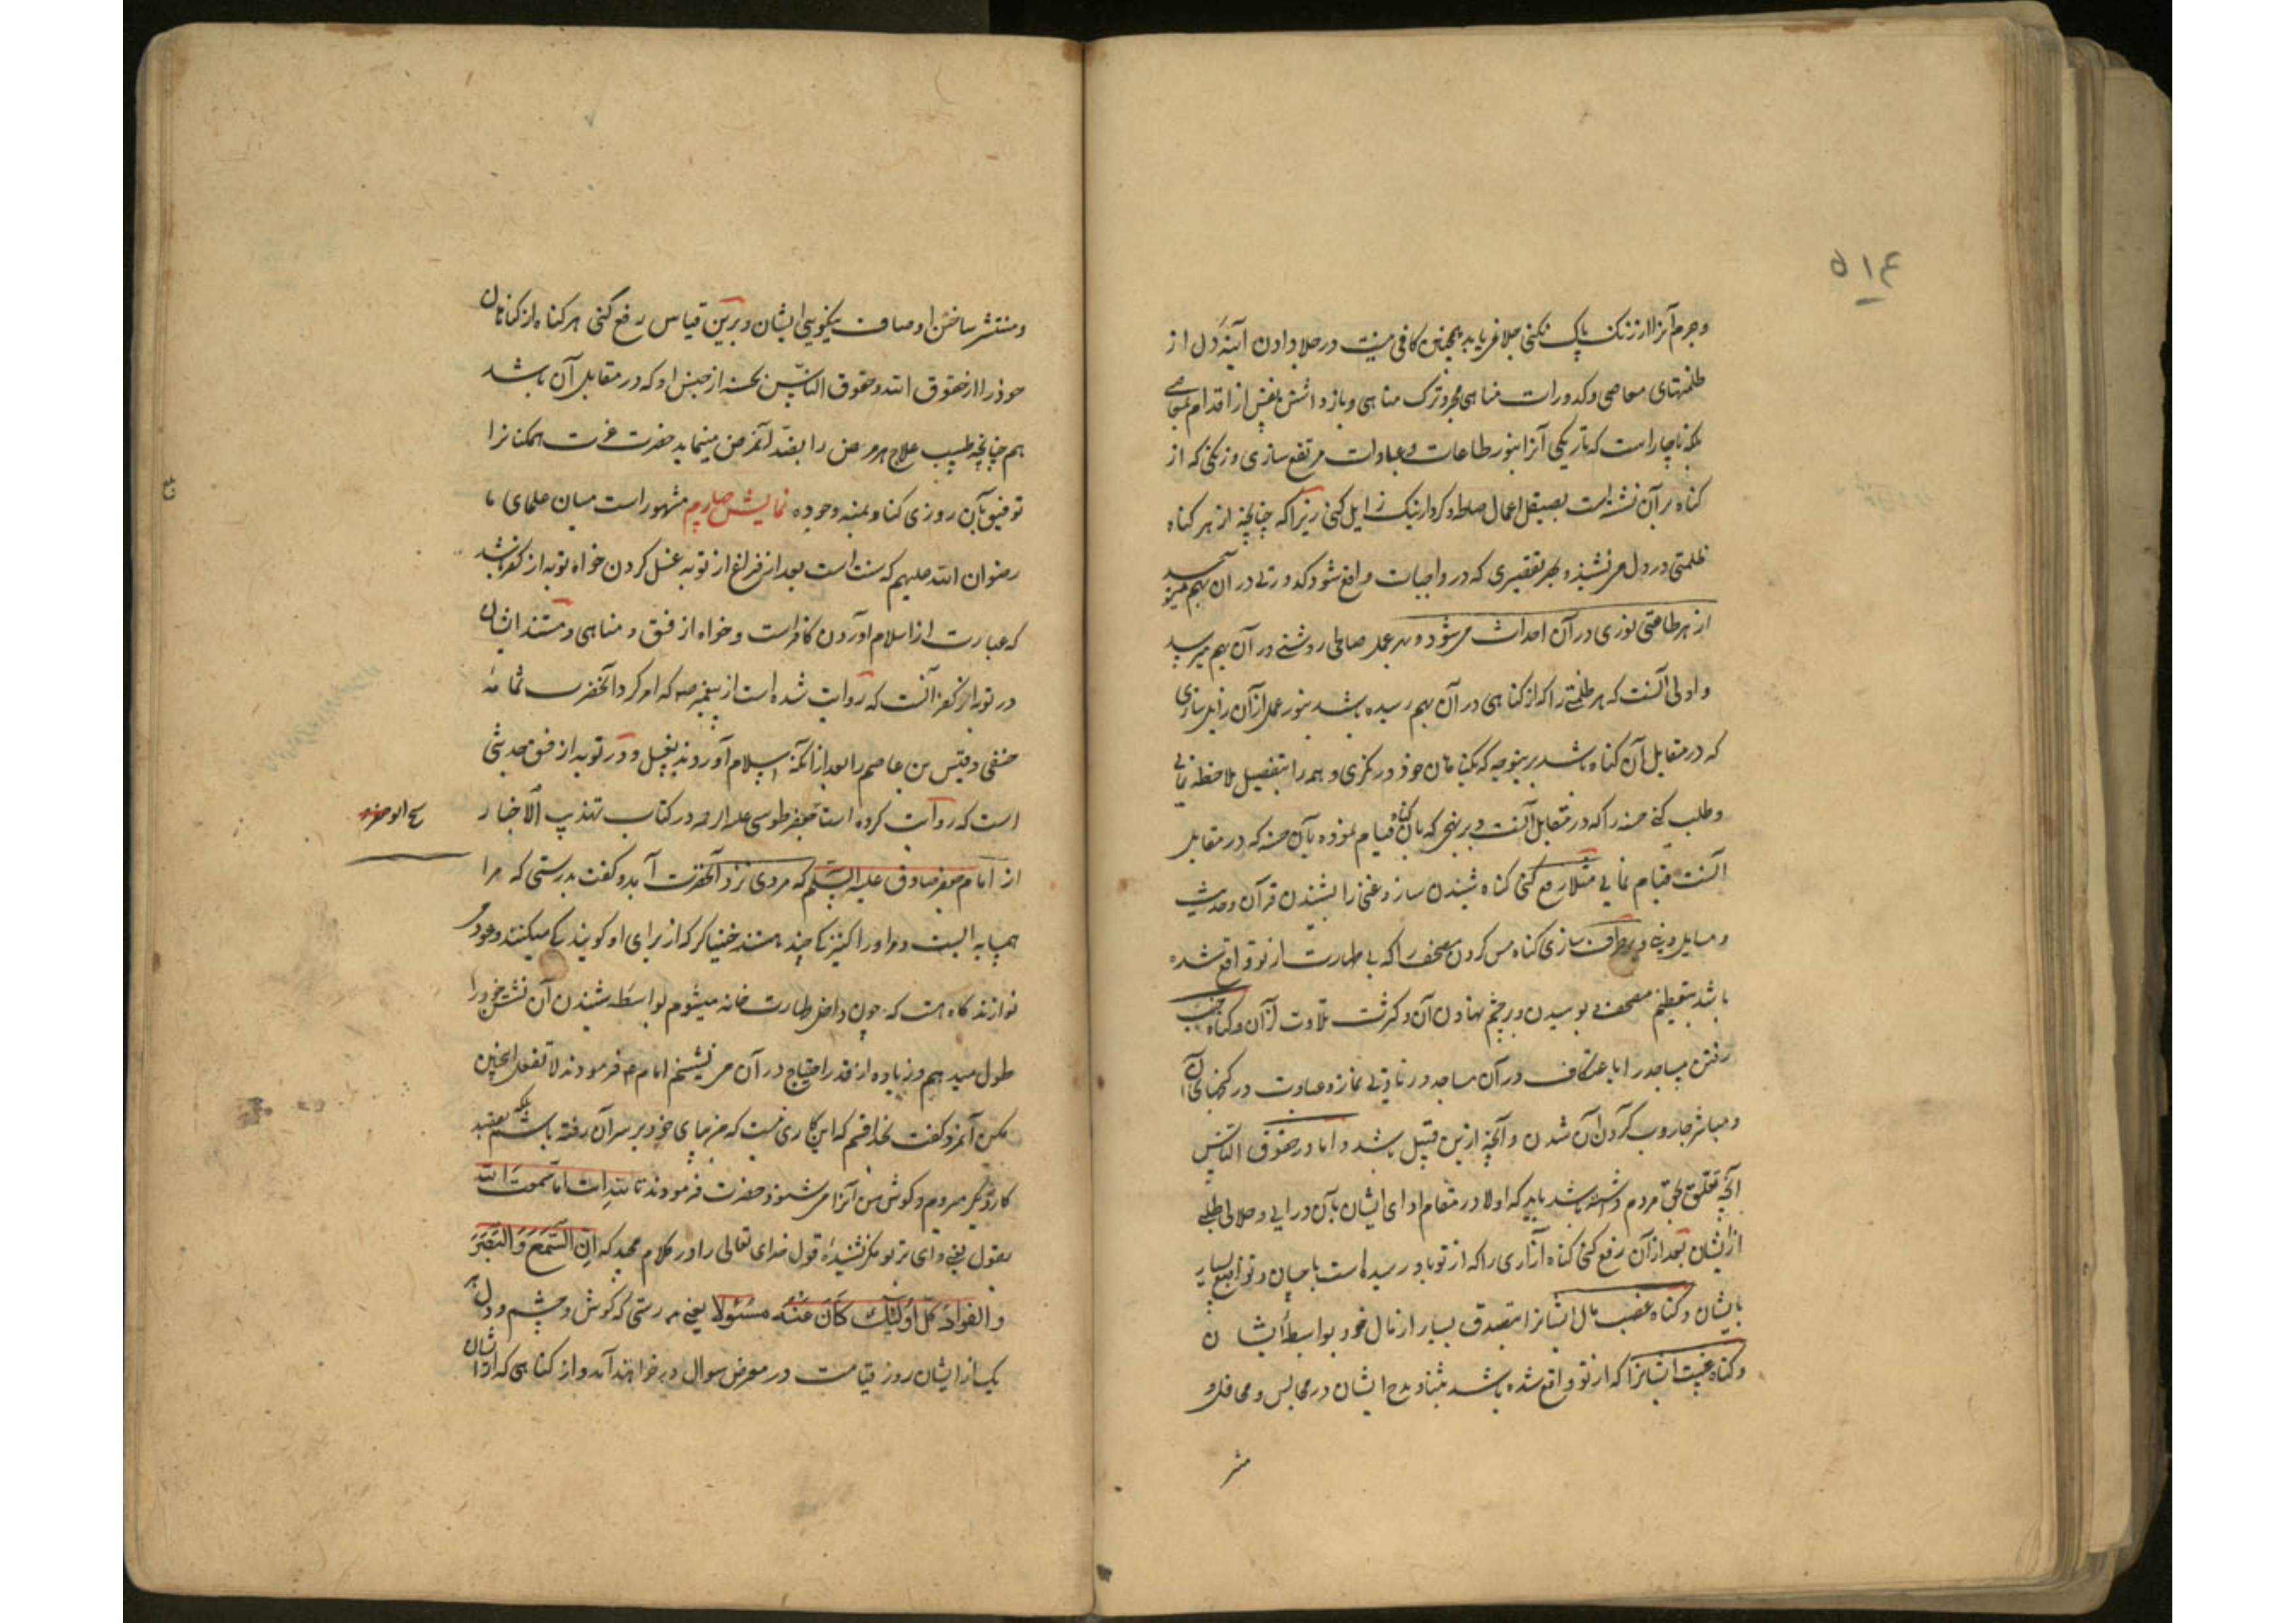 ۵۱۴
و جرم آنرا از زنک پاک نکنی جلا نمی یابد همچنین کافی نیست در جلا دادن آینهٔ دل از
ظلمتهای معاصی و کدورات مناهی مجرد ترک مناهی و باز داشتن نفس از اقدام بمعاصی
بلکه ناچار است که تاریکی آنرا بنور طاعات و عبادات مرتفع سازی و زنکی که از
کناه بر آن نشسته است بصیقل اعمال صالحه و کردار نیک زایل کنی زیرا که چنانچه از هر کناه
ظلمتی در دل می نشیند و بهر تقصیری که در واجبات واقع شود کدورتی در آن بهم میرسد
از هر طاعتی نوری در آن احداث می شود و بهر عمل صالحی روشنی در آن بهم میرسد
و اولی آنست که هر ظلمتی را که از کناهی در آن بهم رسیده باشد بنور عملی از آن زایل سازی
که در مقابل آن کناه باشد برینوجه که بکناهان خود در نکری و همه را بتفصیل ملاحظه نمایی
و طلب کنی حسنه را که در مقابل آنست و بر نهجی که بآن کناه قیام نموده بآن حسنه که در مقابل
آنست قیام نمایی مثلا رفع کنی کناه شنیدن ساز و غنا را بشنیدن قرآن و حدیث
و مسایل دینیه و برطرف سازی کناه مس کردن مصحف را که بی طهارت از تو واقع شده
باشد بتعظیم مصحف و بوسیدن و بر چشم نهادن آن و کثرت تلاوت از آن و کناه جنب
رفتن مساجد را باعتکاف در آن مساجد و زیادتی نماز و عبادت در کنجهای آن
و مباشر جاروب کردن آن شدن و آنچه ازین قبیل باشد و اما در حقوق الناس
آنچه تعلق بحق مردم داشته باشد باید که اولا در مقام ادای ایشان بآن درایی و حلالی طلبی
از ایشان بعد از آن رفع کنی کناه آزاری را که از تو باو رسیده است باحسان و تواضع بسیار
بایشان و کناه غصب مال ایشانرا بتصدق بسیار از مال خود بواسطهٔ ایشان
و کناه غیبت ایشانرا که از تو واقع شده باشد بثنا و مدح ایشان در مجالس و محافل و
منتشر
و منتشر ساختن اوصاف نیکویی ایشان و برین قیاس رفع کنی هر کناه از کناهان
خود را از حقوق الله و حقوق الناس بحسنه از جنس او که در مقابل آن باشد
هم چنانچه طبیب علاج هر مرض را بضد آنمرض مینماید حضرت عزت همکنانرا
توفیق آن روزی کناد بمنه وجوده نمایش چهارم مشهور است میان علمای ما
رضوان الله علیهم که سنت است بعد از فراغ از توبه غسل کردن خواه توبه از کفر باشد
که عبارت از اسلام آوردن کافر است و خواه از فسق و مناهی و مستند ایشان
در توبه از کفر آنست که روایت شده است از پیغمبر ص که امر کرد آنحضرت ثمامهٔ
حنفی و قیس بن عاصم را بعد از آنکه اسلام آوردند بغسل و در توبه از فسق حدیثی
است که روایت کرده است طوسی علیه الرحمه در کتاب تهذیب الاخبار
از امام جعفر صادق علیه السلم که مردی نزد آنحضرت آمد و کفت بدرستی که مرا
همسایه ایست و او را کنیزکی چند هستند خنیاکر که از برای او کویندکی میکنند و عود
نوازند کاه هست که چون داخل طهارت خانه میشوم بواسطه شنیدن آن نشستن خود را
طول میدهم و زیاده از قدر احتیاج در آن می نشینم امام ع فرمودند لا تفعل اینچنین
مکن آنمرد کفت بخدا قسم که این کاری نیست که من بپای خود بر سر آن رفته باشم بلکه بقصد
کار دیگر میروم و کوش من آنرا می شنود حضرت فرمودند تالله انت اما سمعت الله
یقول یعنی وای بر تو مکر نشنیدهٔ قول خدای تعالی را در کلام مجید که ان السمع و البصر
و الفواد کل اولئک کان عنه مسئولا یعنی بدرستی که کوش و چشم و دل هر
یک از ایشان روز قیامت در معرض سوال در خواهند آمد و از کناهی که از ایشان